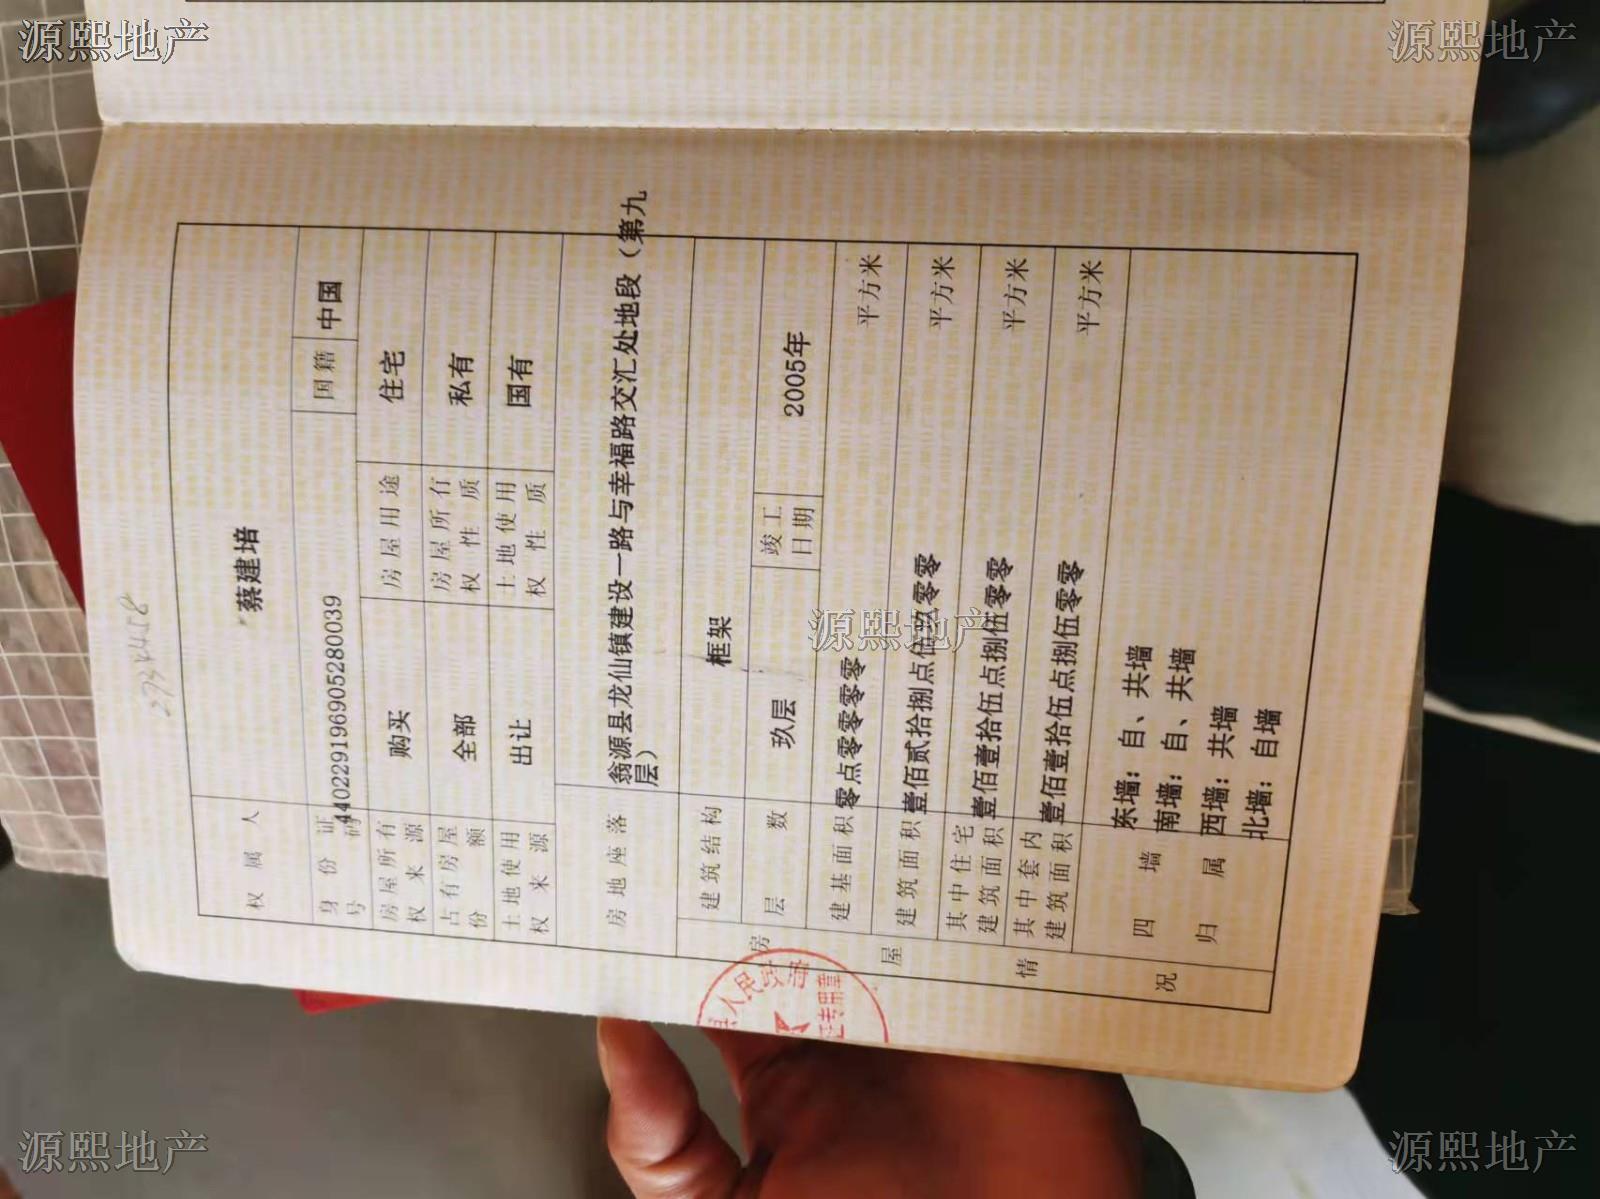 源熙地产
源熙地产
权属人 蔡建培
身份证号码 440229196905280039 国籍 中国
房屋所有权来源 购买 房屋用途 住宅
占有房屋份额 全部 房屋所有权性质 私有
土地使用权来源 出让 土地使用权性质 国有
房地座落 翁源县龙仙镇建设一路与幸福路交汇处地段（第九
层）
房屋情况
建筑结构 框架
层数 玖层 竣工日期 2005年
建基面积 零点零零零零 平方米
建筑面积 壹佰贰拾捌点伍玖零零 平方米
其中住宅建筑面积 壹佰壹拾伍点捌伍零零 平方米
其中套内建筑面积 壹佰壹拾伍点捌伍零零 平方米
四墙归属 东墙：自、共墙
南墙：自、共墙
西墙：共墙
北墙：自墙
县人民政府
专用章
源熙地产
源熙地产
源熙地产